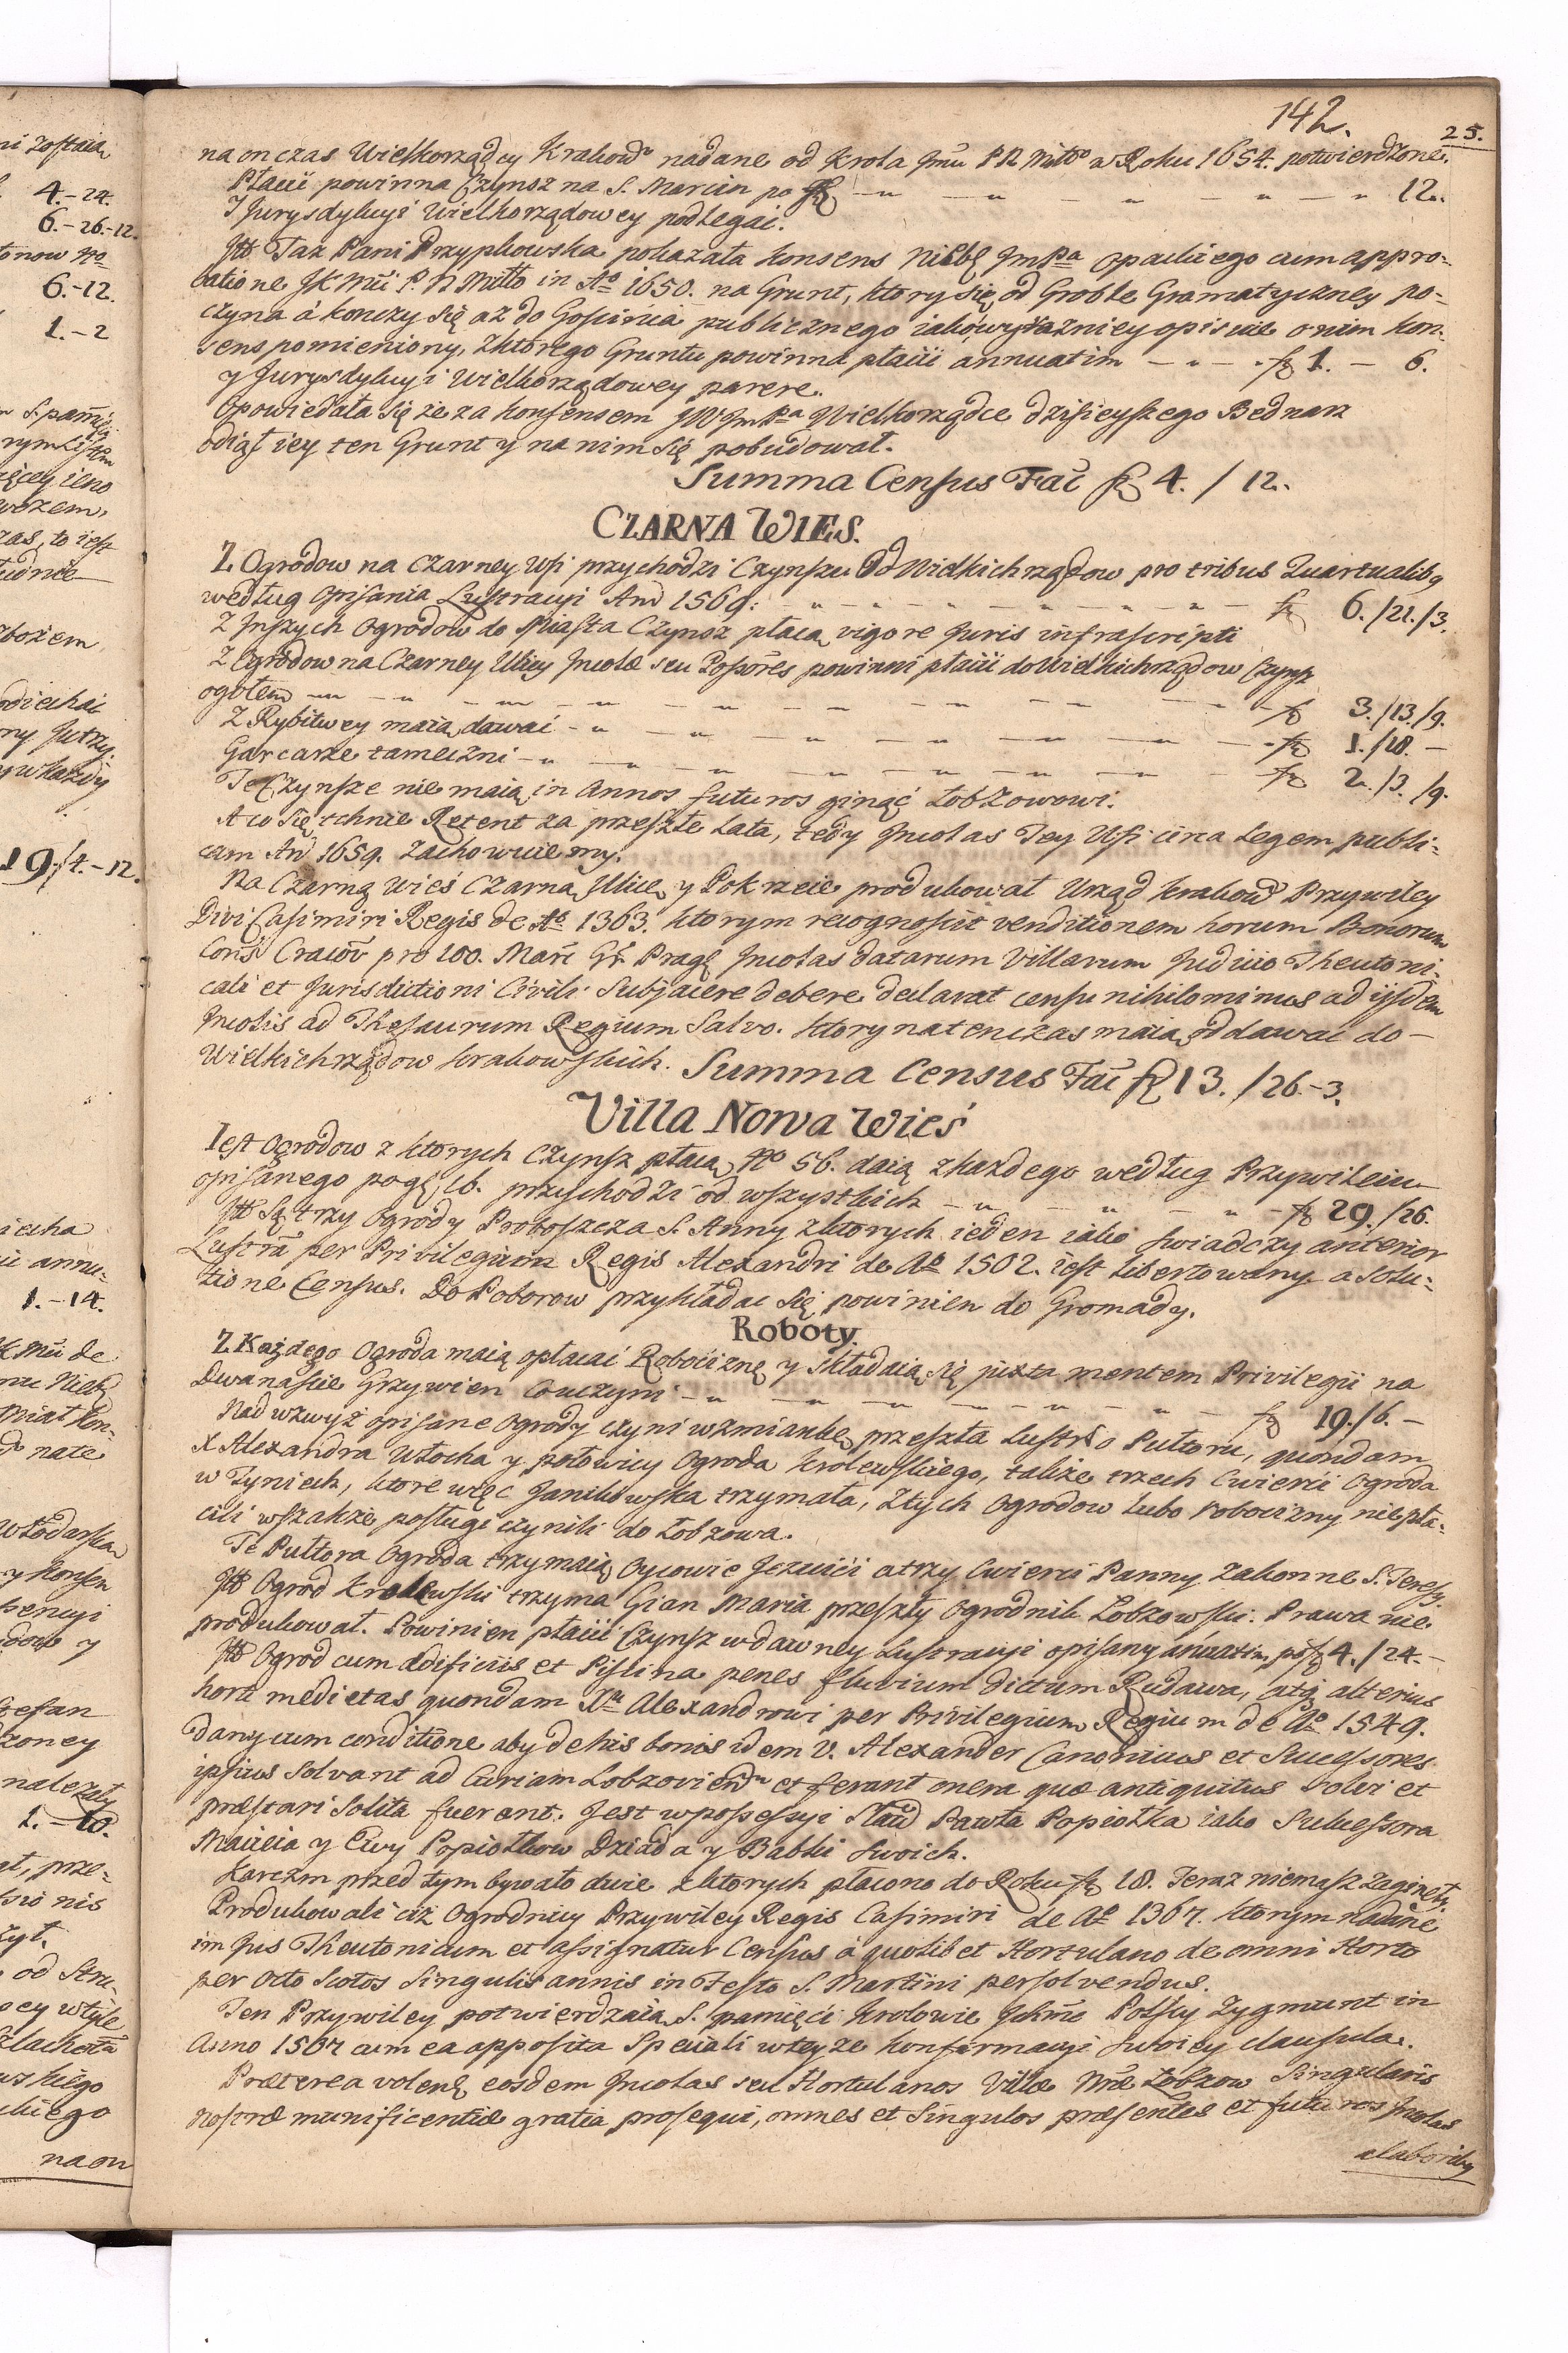 142.
25.
na onczas Wielkorządcy Krakow̃ nadane od Krola Jmči P N Miłło w Roku 1654. potwierdzone.
Płacić powinna Czynsz na S. Marcin po f 12.
I Jurysdykcyi Wielkorządowey podlegać.
Itt. Taż Pani Przypkowska pokazała Konsens Nieb JmPa Opackiego cum appro-
batione JKMči P. N Miłło in Ao 1650. na Grunt, ktory się od Groble Gramatyczney po-
czyna á konczy się aż do Gościnca publicznego iako wyrazniey opisuie o nim kon-
sens pomieniony, z ktorego Gruntu powinna płacić annuatim f 1. - 6.
y Jurysdykcyi Wielkorządowey parere.
Opowiedała się że za konsensem JWJmPa Wielkorządce dzisieyszego Bednarz
odiął iey ten Grunt y na nim się pobudował.
Summa Census Fač f 4. / 12.
CZARNA WIES.
Z Ogrodow na Czarney Wsi przychodzi Czynszu Od Wielkich rządow pro tribus Quartualibg
według Opisania Lustracyi And 1569: f 6./21./3.
Z Inszych Ogrodow do Miasta Czynsz płacą vigore Juris infrascripti
Z Ogrodow na Czarney Ulicy Incolæ seu Possores powinni płacić do Wielkichrządow Czynsz
ogołem f 3./13./9.
Z Rybitwey maią dawać f 1./18. -
Garcarze tameczni f 2./3./9.
Te Czynsze nie maią in Annos futuros ginąć Łobzowowi.
A co się tchnie Retent za przeszłe Lata, tedy Incolas Tey Wsi circa Legem publi-
cam And 1659. zachowuiemy.
Na Czarną Wieś Czarną Ulicę y Pokrzcie produkował Urząd Krakow̃ Przywiley
Divi Casimiri Regis de Ao 1363. ktorym recognoscit venditionem horum Bonorum
Cons̃ Cracov̄ pro 100. Marc̃ Gr̃ Pragę Incolas datarum Villarum Judicio Theutoni-
cali et Jurisdictioni Civili Subjacere debere declarat censu nihilominus ad ijsdem
Incolis ad Thesaurum Regium Salvo. ktory natenczas maią oddawać do -
Wielkichrządow Krakowskich. Summa Census Fač f 13. /26-3.
Villa Nowa Wieś
Iest Ogrodow z ktorych Czynsz płacą, No 56. daią z każdego według Przywileiu
opisanego po gr, 16. przychodzi od wszystkich f 29./26.
Itt Są trzy Ogrody Proboszcza S. Anny z ktorych ieden iako swiadczy anterior
Lustrã per Privilegium Regis Alexandri de Ao 1502. iest libertowany a solu-
tione Census. Do Poborow przykładać się powinien do Gromady.
Roboty.
Z Każdego Ogroda maią opłacać Robociznę y składaią się juxta mentem Privilegii na
Dwanascie Grzywien Co czyni f 19./6. -
Nad wzwyż opisane Ogrody czyni wzmiankę przeszła Lustr̃ o Pułtoru, quondam
X Alexandra Włocha y połowicy Ogroda Krolewskiego, także trzech Cwierci Ogroda
w Tyniech, ktore więc Janikowska trzymała, Z tych Ogrodow lubo robocizny niepła-
cili wszakże posługi czynili do Łobzowa.
Te Pułtora Ogroda trzymaią Oycowie Jezuići a trzy Cwierci Panny Zakonne S. Teresy.
Itt Ogrod Krolewski trzyma Gian Maria przeszły Ogrodnik Łobzowski. Prawa nie
produkował. Powinien płacić Czynsz w dawney Lustracyi opisany annuatim po f 4./24. -
Itt Ogrod cum ædificiis et Piscina penes fluvium dictum Rudawa, atq alterius
horti medietas quondam Xu Alexandrowi per Privilegium Regium de Ao 1549.
dany cum conditione aby de his bonis idem V. Alexander Canonicus et Successores
ipsius solvant ad Curiam Lobzovien et ferant onera quæ antiquitus solvi et
præstari solita fuerant. Jest w possessyi Sław Pawła Popiołka iako Sukcessora
Macieia y Ewy Popiołkow Dziada y Babki swoich.
Karczm przed tym bywało dwie z ktorych płacono do Roku f 18. Teraz niemasz zaginęły.
Produkowali ciż Ogrodnicy Przywiley Regis Casimiri de Ao 1367. ktorym nadane
im Jus Theutonicum et assignatur Census á quolibet Hortulano de omni Horto
per Octo Scotos singulis annis in Festo S. Martini persolvendus.
Ten Przywiley potwierdzaią S. pamięći Krolowie Ichmč Polscy Zygmunt in
Anno 1507 cum ea apposita Speciali w teyże konfirmacyi swoiey clausula.
Præterea volenę eosdem Incolas seu Hortulanos Villæ Nræ Łobzow Singularis
nostræ munificentiæ gratia prosequi, omnes et singulos præsentes et futuros Incolas
a laboribg